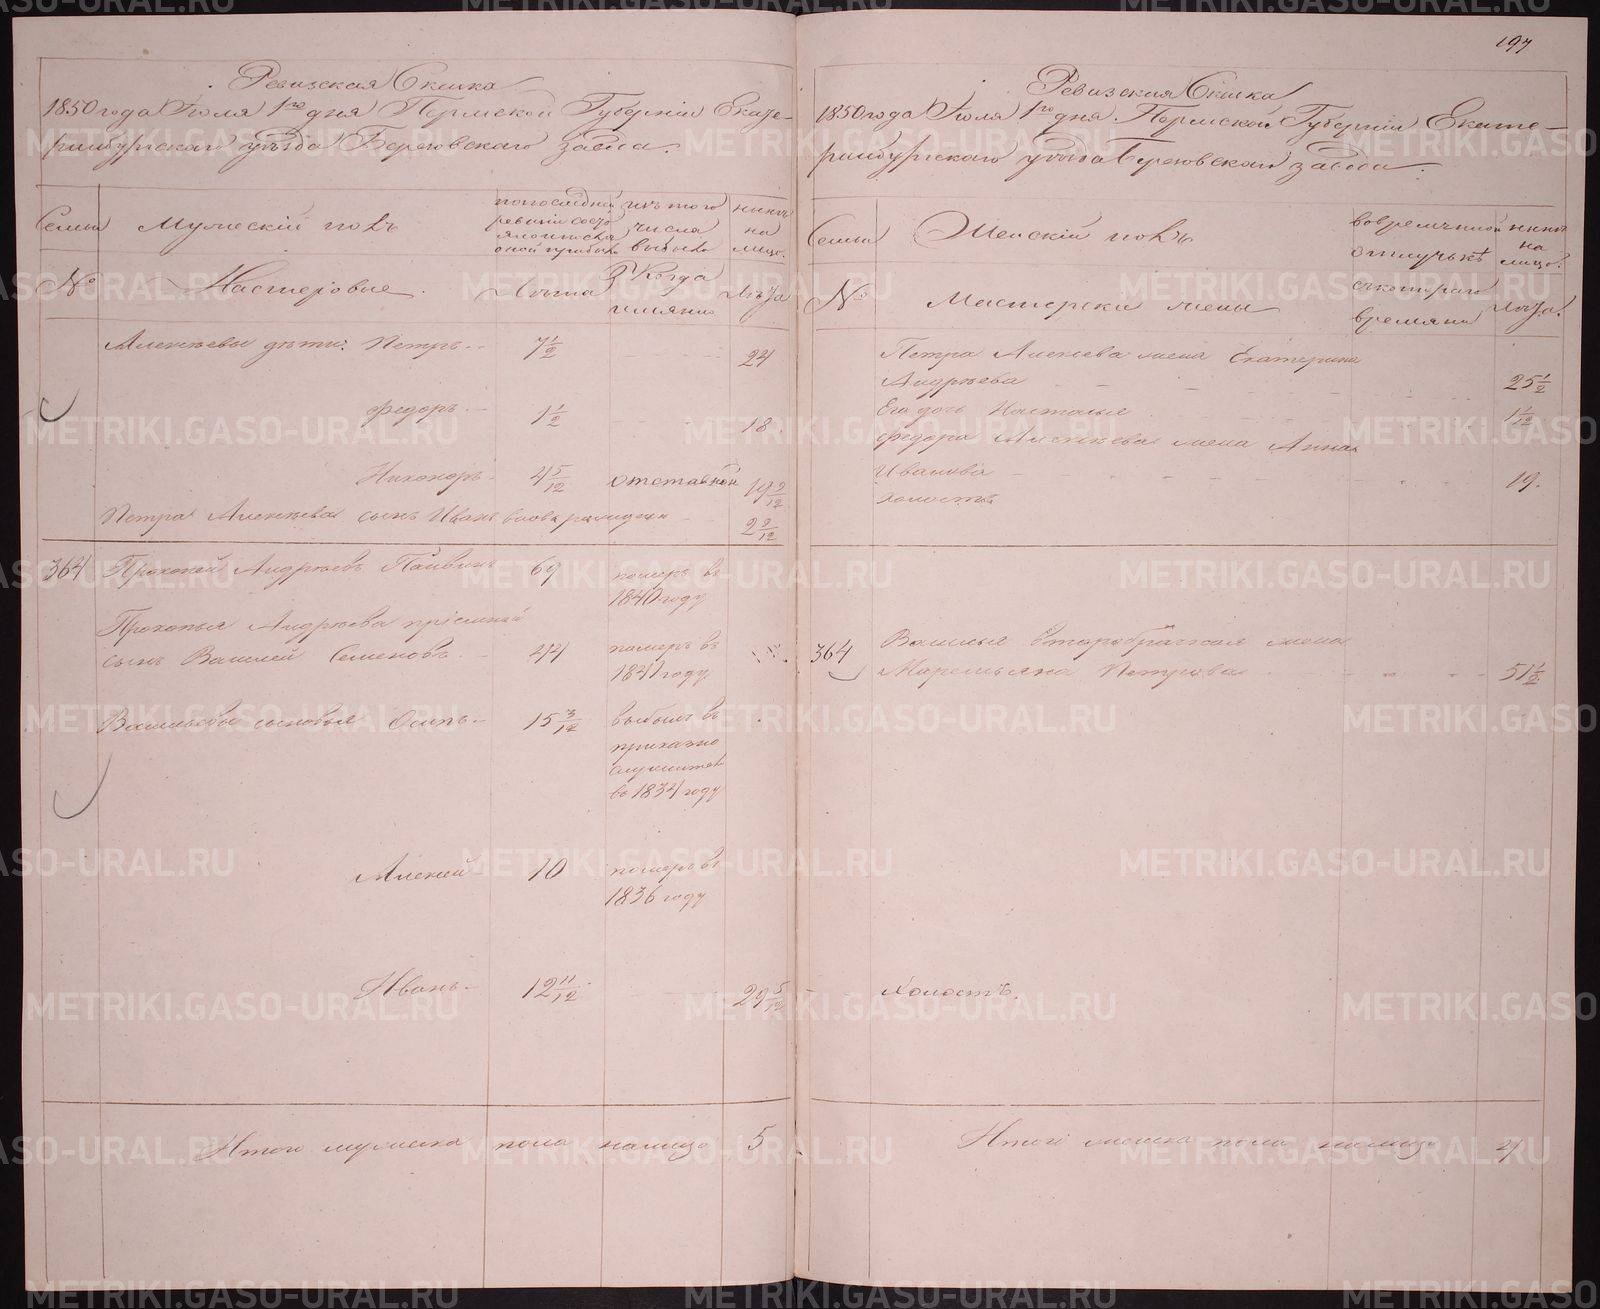 Ревизская Скаска
1850 года Июля 1го дня Пермской Губернiи Екате-
ринбургскаго уѣзда Березовскаго завода.
Семьи
Мужескiй полъ
по последней
ревизiи состо
изъ того
числа
выбыло
нынѣ
на
лицо.
№
Мастеровые.
Лѣта
Когда
имянно
Лѣта
Алексѣевы дѣти: Петръ 7 1/2 24
Федоръ 1 1/2 18
Никоноръ 4 5/12 отставной 19 9/12
Петра Алексѣева сынъ Иванъ вновь рожденъ 2 9/12
364 Прокопей Андрѣевъ Пайвинъ 69 померъ въ
1840 году
Прокопья Андрѣева прiемный
сынъ Василей Семеновъ 44 померъ въ
1841 году
Васильевы сыновья Осипъ 15 3/12 выбылъ въ
приказно
служител
въ 1834 году
Алексей 10 померъ въ
1836 году
Иванъ 12 11/12 29 5/12
Итого мужеска пола налицо 5
197
Ревизская Скаска
1850 года Июля 1го дня. Пермской Губернiи Екате-
ринбургскаго уѣзда Березовскаго завода.
Семьи
Женскiй полъ
во временной
отлучкѣ
нынѣ
на
лицо.
№
Мастерски жены
съ котораго
времяни
Лѣта.
Петра Алексѣева жена Екатерина
Андрѣева 25 1/2
Его дочь Наталья 1 1/2
Федора Алексѣева жена Анна
Иванова 19.
холостъ
364 Василья второбрачная жена
Маремьяна Петрова 51 1/2
холостъ.
Итого женска пола налицо 4
METRIKI.GASO-URAL.RU